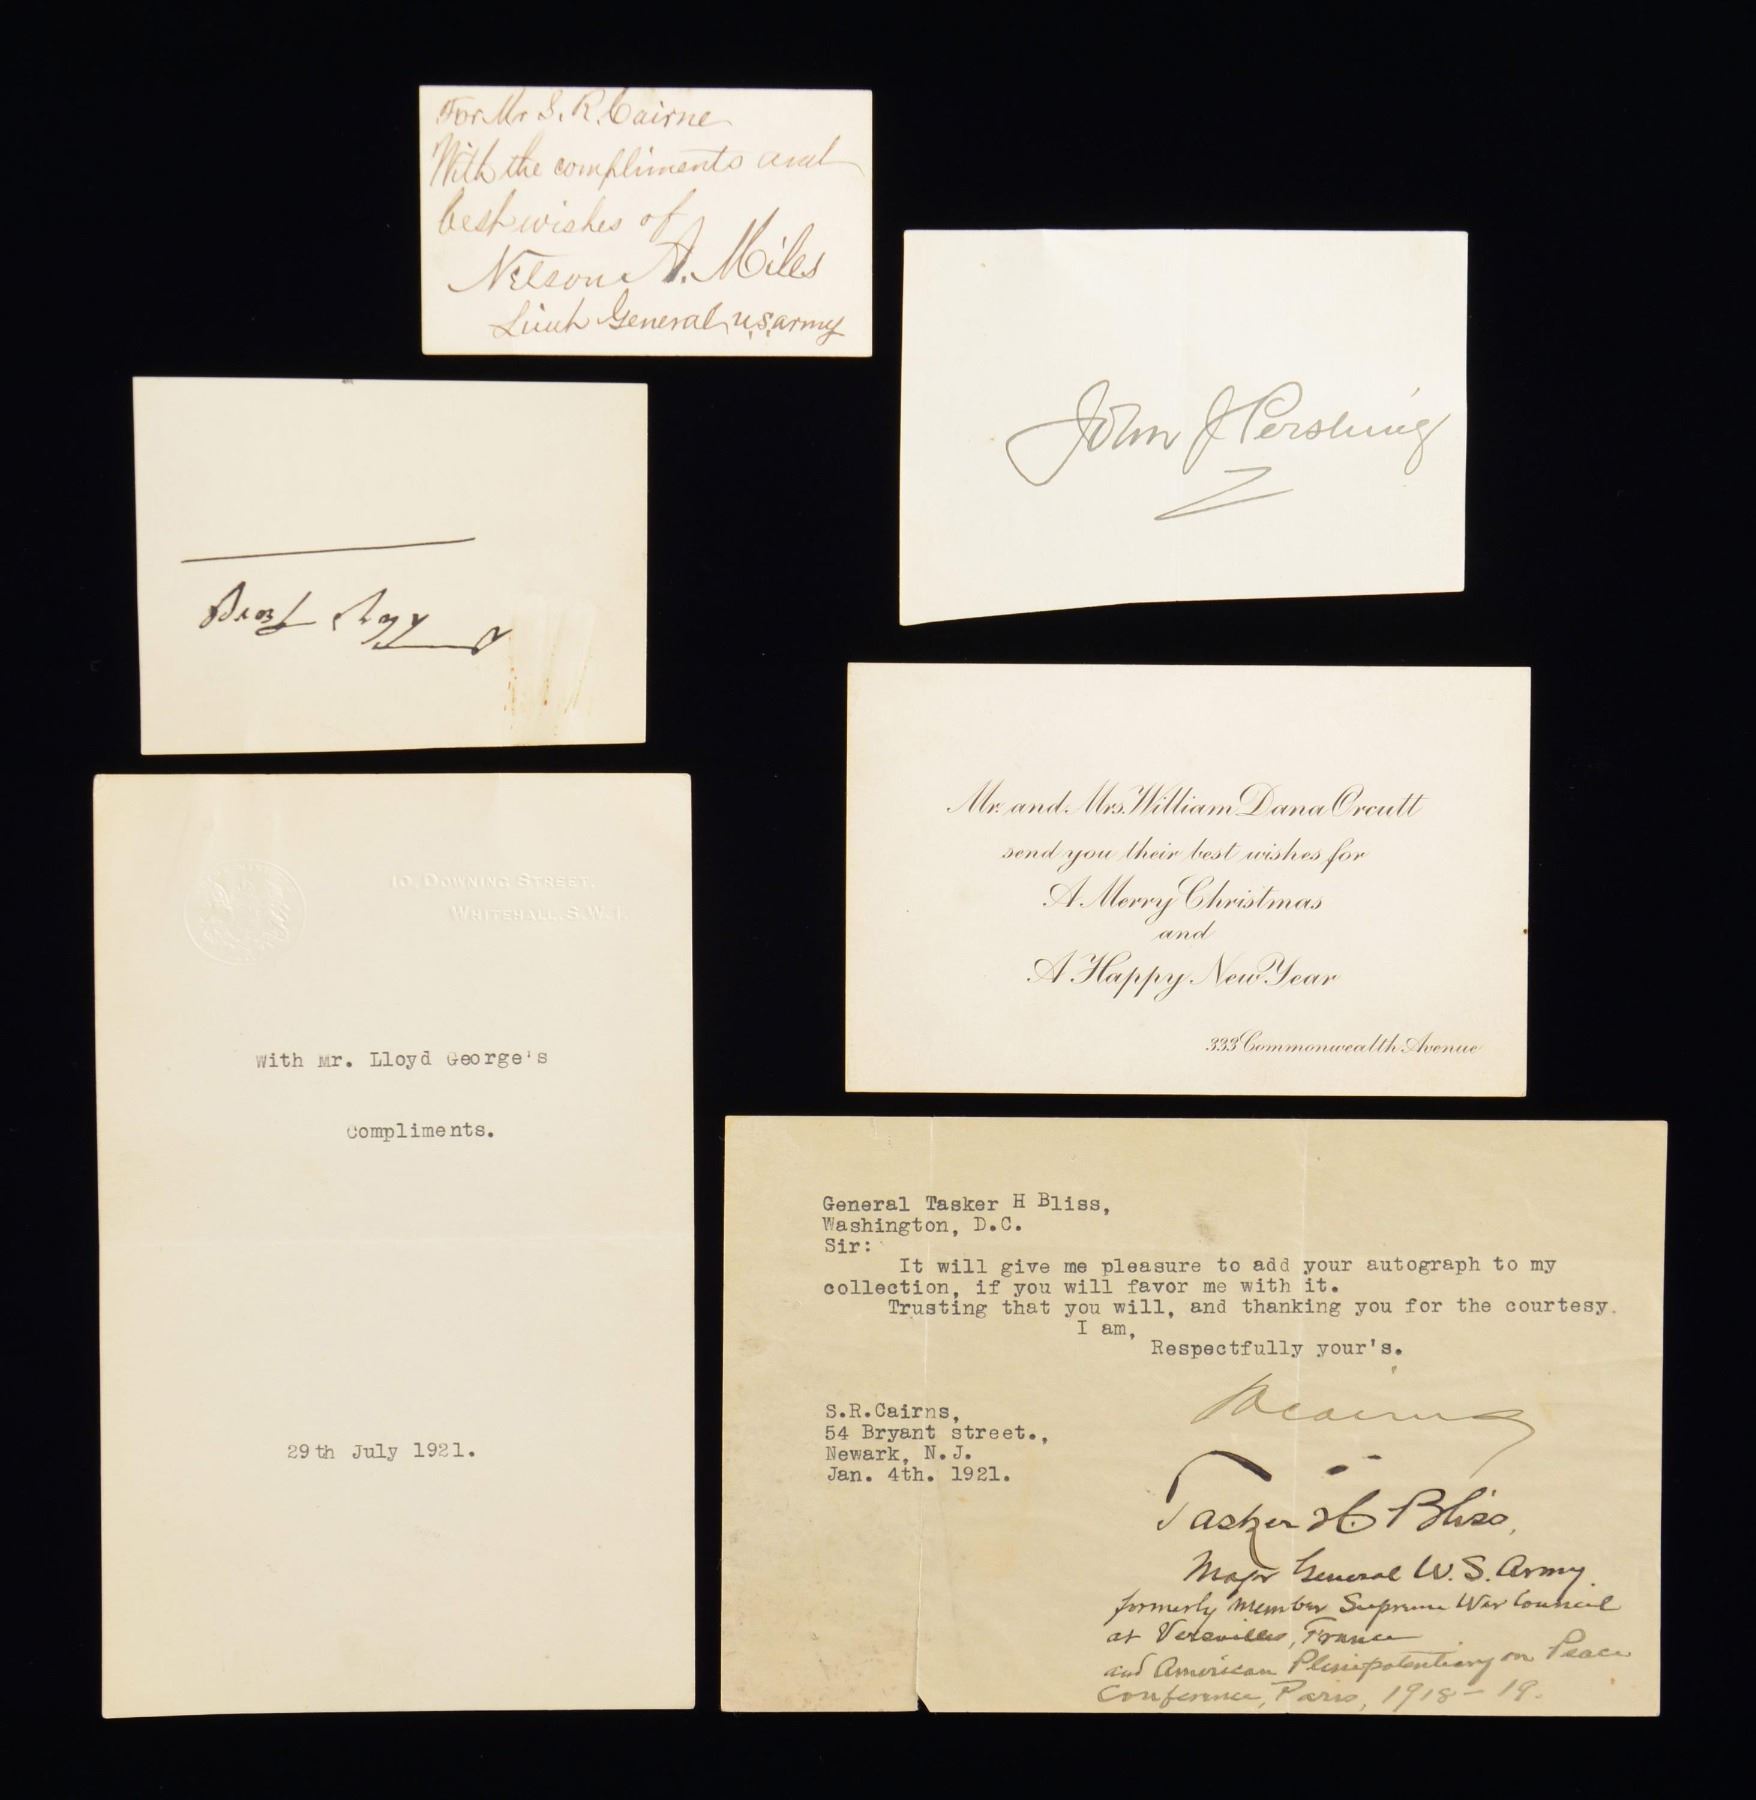 For Mr S. R. Cairne
With the compliments and
best wishes of
Nelson A. Miles
Lieut General U.S. army
John J Pershing
Mr. and Mrs. William Dana Orcutt
send you their best wishes for
A Merry Christmas
and
A Happy New Year
333 Commonwealth Avenue
10, DOWNING STREET,
WHITEHALL. S.W.1.
With Mr. Lloyd George's
Compliments.
29th July 1921.
General Tasker H Bliss,
Washington, D.C.
Sir:
It will give me pleasure to add your autograph to my
collection, if you will favor me with it.
Trusting that you will, and thanking you for the courtesy.
I am,
Respectfully your's.
S.R.Cairns,
54 Bryant street.,
Newark, N.J.
Jan. 4th. 1921.
Tasker H. Bliss,
Major General U.S. Army.
formerly member Supreme War Council
at Versailles, France
and American Plenipotentiary on Peace
Conference, Paris, 1918-19.